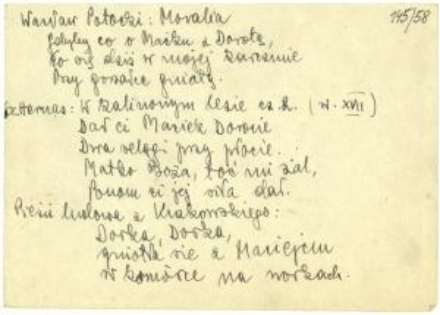 Wacław Potocki: Moralia 145/58
Gdyby co o Maćku z Dorotą,
Co się dziś w mojej karczmie
Przy gorzałce
Cz. Hernas: W kalinowym lesie cz. 2. (w. XVII)
Dał ci Maciek Dorocie
Dwa szelągi przy płocie.
Matko Boża, toć mi żal,
ci jej siła dał.
Pieśń ludowa z Krakowskiego:
Dorka, Dorka,
gniotła się z Maciejem
w komórce na workach.